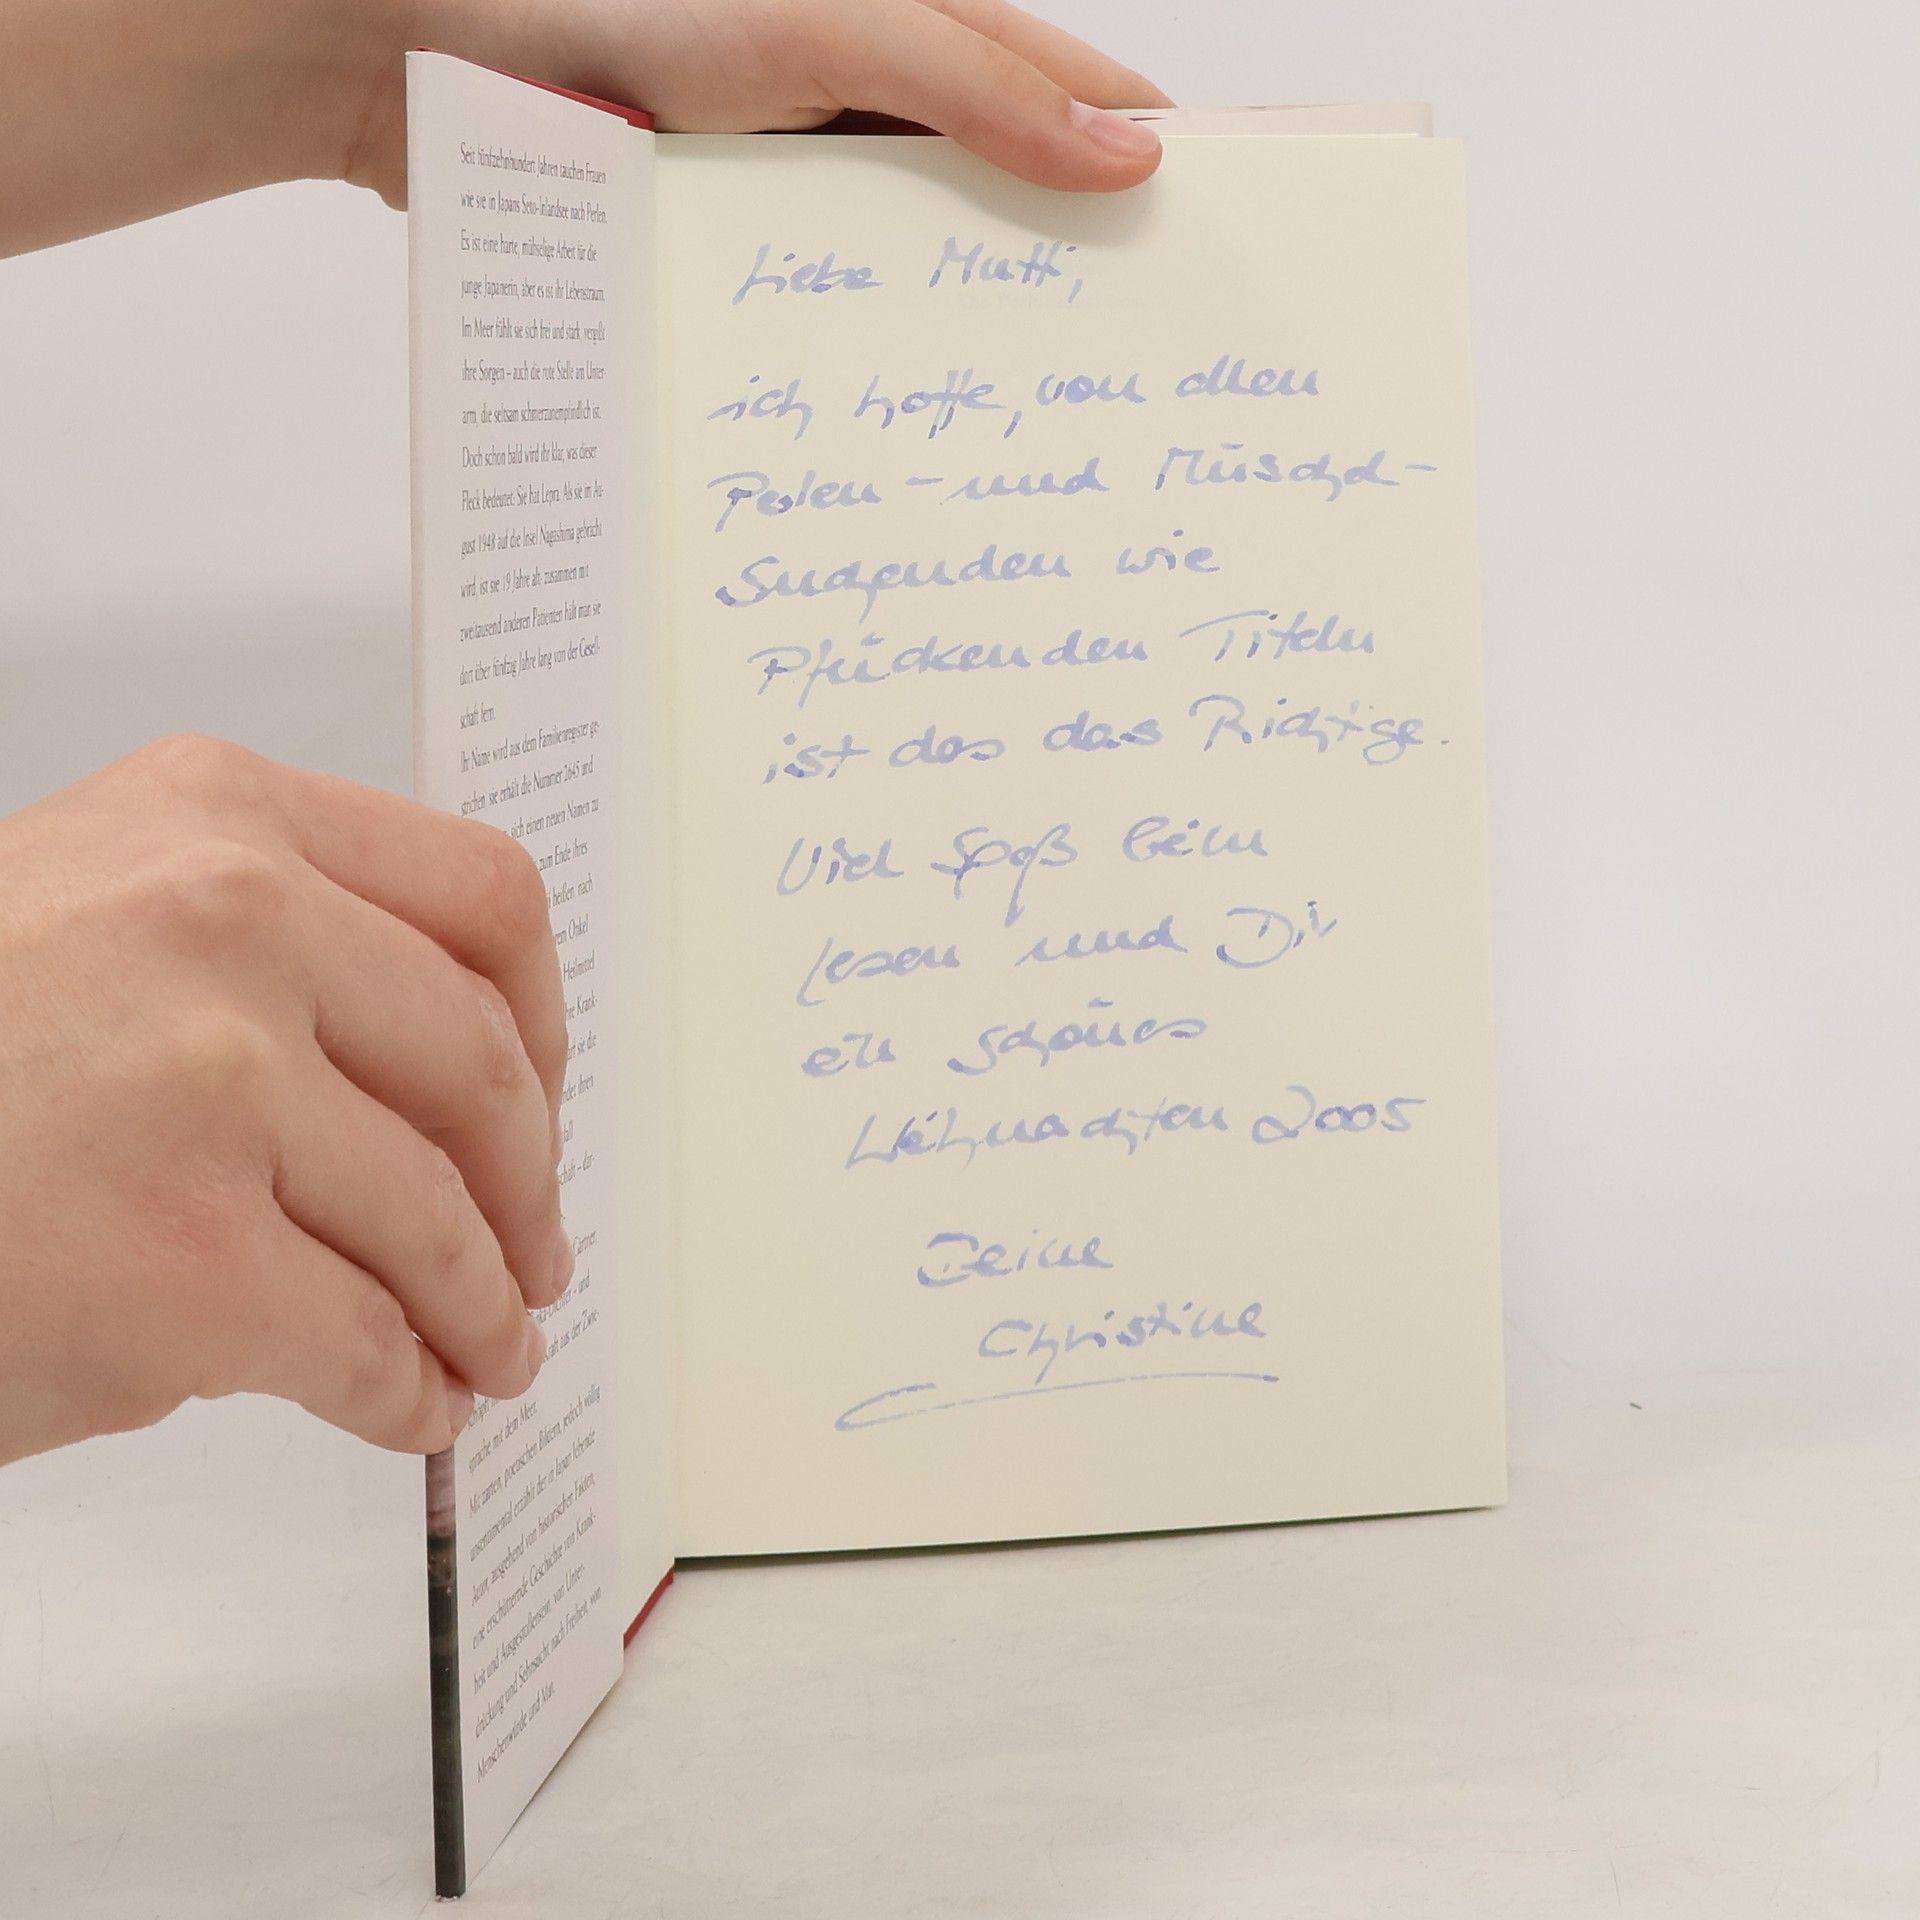 Seit fünfzehnhundert Jahren tauchen Frauen
wie sie in Japans Seto-Inlandsee nach Perlen.
Es ist eine harte, mühselige Arbeit für die
junge Japanerin, aber es ist ihr Lebenstraum.
Im Meer fühlt sie sich frei und stark, vergißt
ihre Sorgen – auch die rote Stelle am Unter-
arm, die seltsam schmerzunempfindlich ist.
Doch schon bald wird ihr klar, was dieser
Fleck bedeutet: Sie hat Lepra. Als sie im Au-
gust 1948 auf die Insel Nagashima gebracht
wird, ist sie 19 Jahre alt: zusammen mit
zweitausend anderen Patienten hält man sie
dort über fünfzig Jahre lang von der Gesell-
schaft fern.
Ihr Name wird aus dem Familienregister ge-
strichen, sie erhält die Nummer 2645 und
sich einen neuen Namen zu
zum Ende ihres
heißen, nach
Onkel
Heilmittel
Krank-
sie die
ihren
dar-
Gärtner,
und
Kraft aus der Zwie-
sprache mit dem Meer.
Mit zarten, poetischen Bildern, jedoch völlig
unsentimental erzählt der in Japan lebende
Autor, ausgehend von historischen Fakten,
eine erschütternde Geschichte von Krank-
heit und Ausgestoßensein, von Unter-
drückung und Sehnsucht nach Freiheit, von
Menschenwürde und Mut.
Liebe Mutti,
ich hoffe, von allen
Perlen- und Muschel-
Suchenden wie
Pflückenden Titeln
ist das das Richtige.
Viel Spaß beim
Lesen und Dir
ein schönes
Weihnachten 2005
Deine
Christine